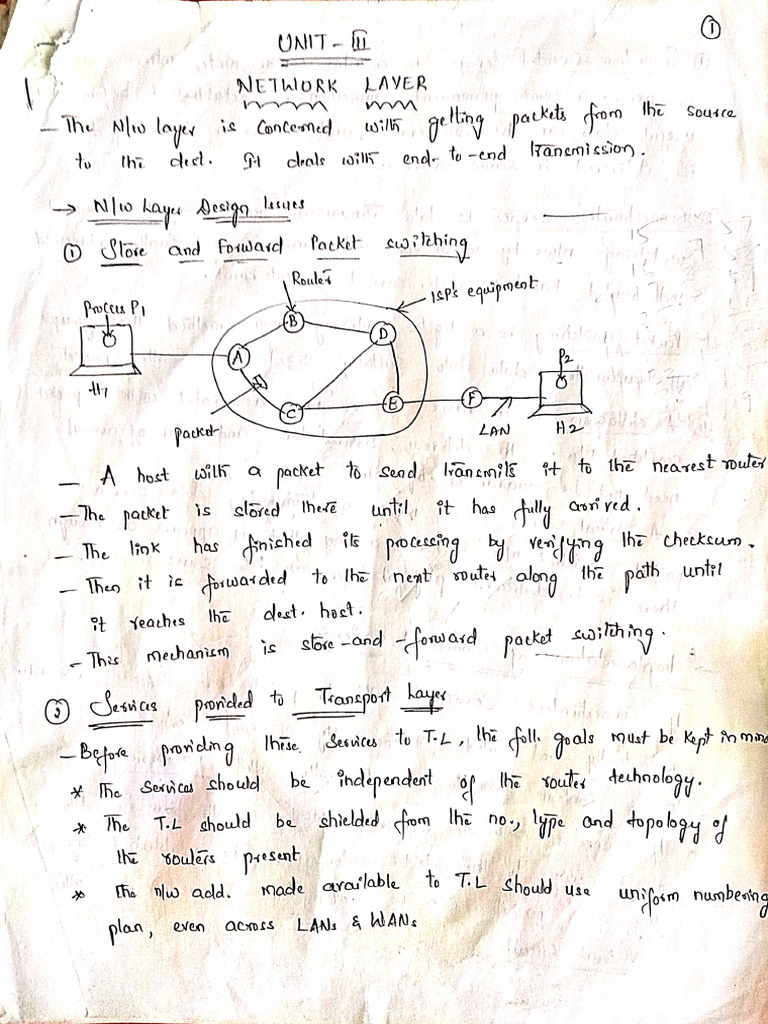 ①
UNIT - III
NETWORK LAYER
- The N/W layer is concerned with getting packets from the source
to the dest. It deals with end-to-end transmission.
→ N/W Layer Design Issues
① Store and Forward Packet switching
Router
ISP's equipment
Process P1
B
D
A
P2
E
F
C
H1
packet
LAN
H2
- A host with a packet to send transmits it to the nearest router
- The packet is stored there until it has fully arrived.
- The link has finished its processing by verifying the checksum.
- Then it is forwarded to the next router along the path until
it reaches the dest. host.
- This mechanism is store-and-forward packet switching.
② Services provided to Transport Layer
- Before providing these services to T.L, the foll. goals must be kept in mind
* The services should be independent of the router technology.
* The T.L should be shielded from the no., type and topology of
the routers present
* The n/w add. made available to T.L should use uniform numbering
plan, even across LANs & WANs